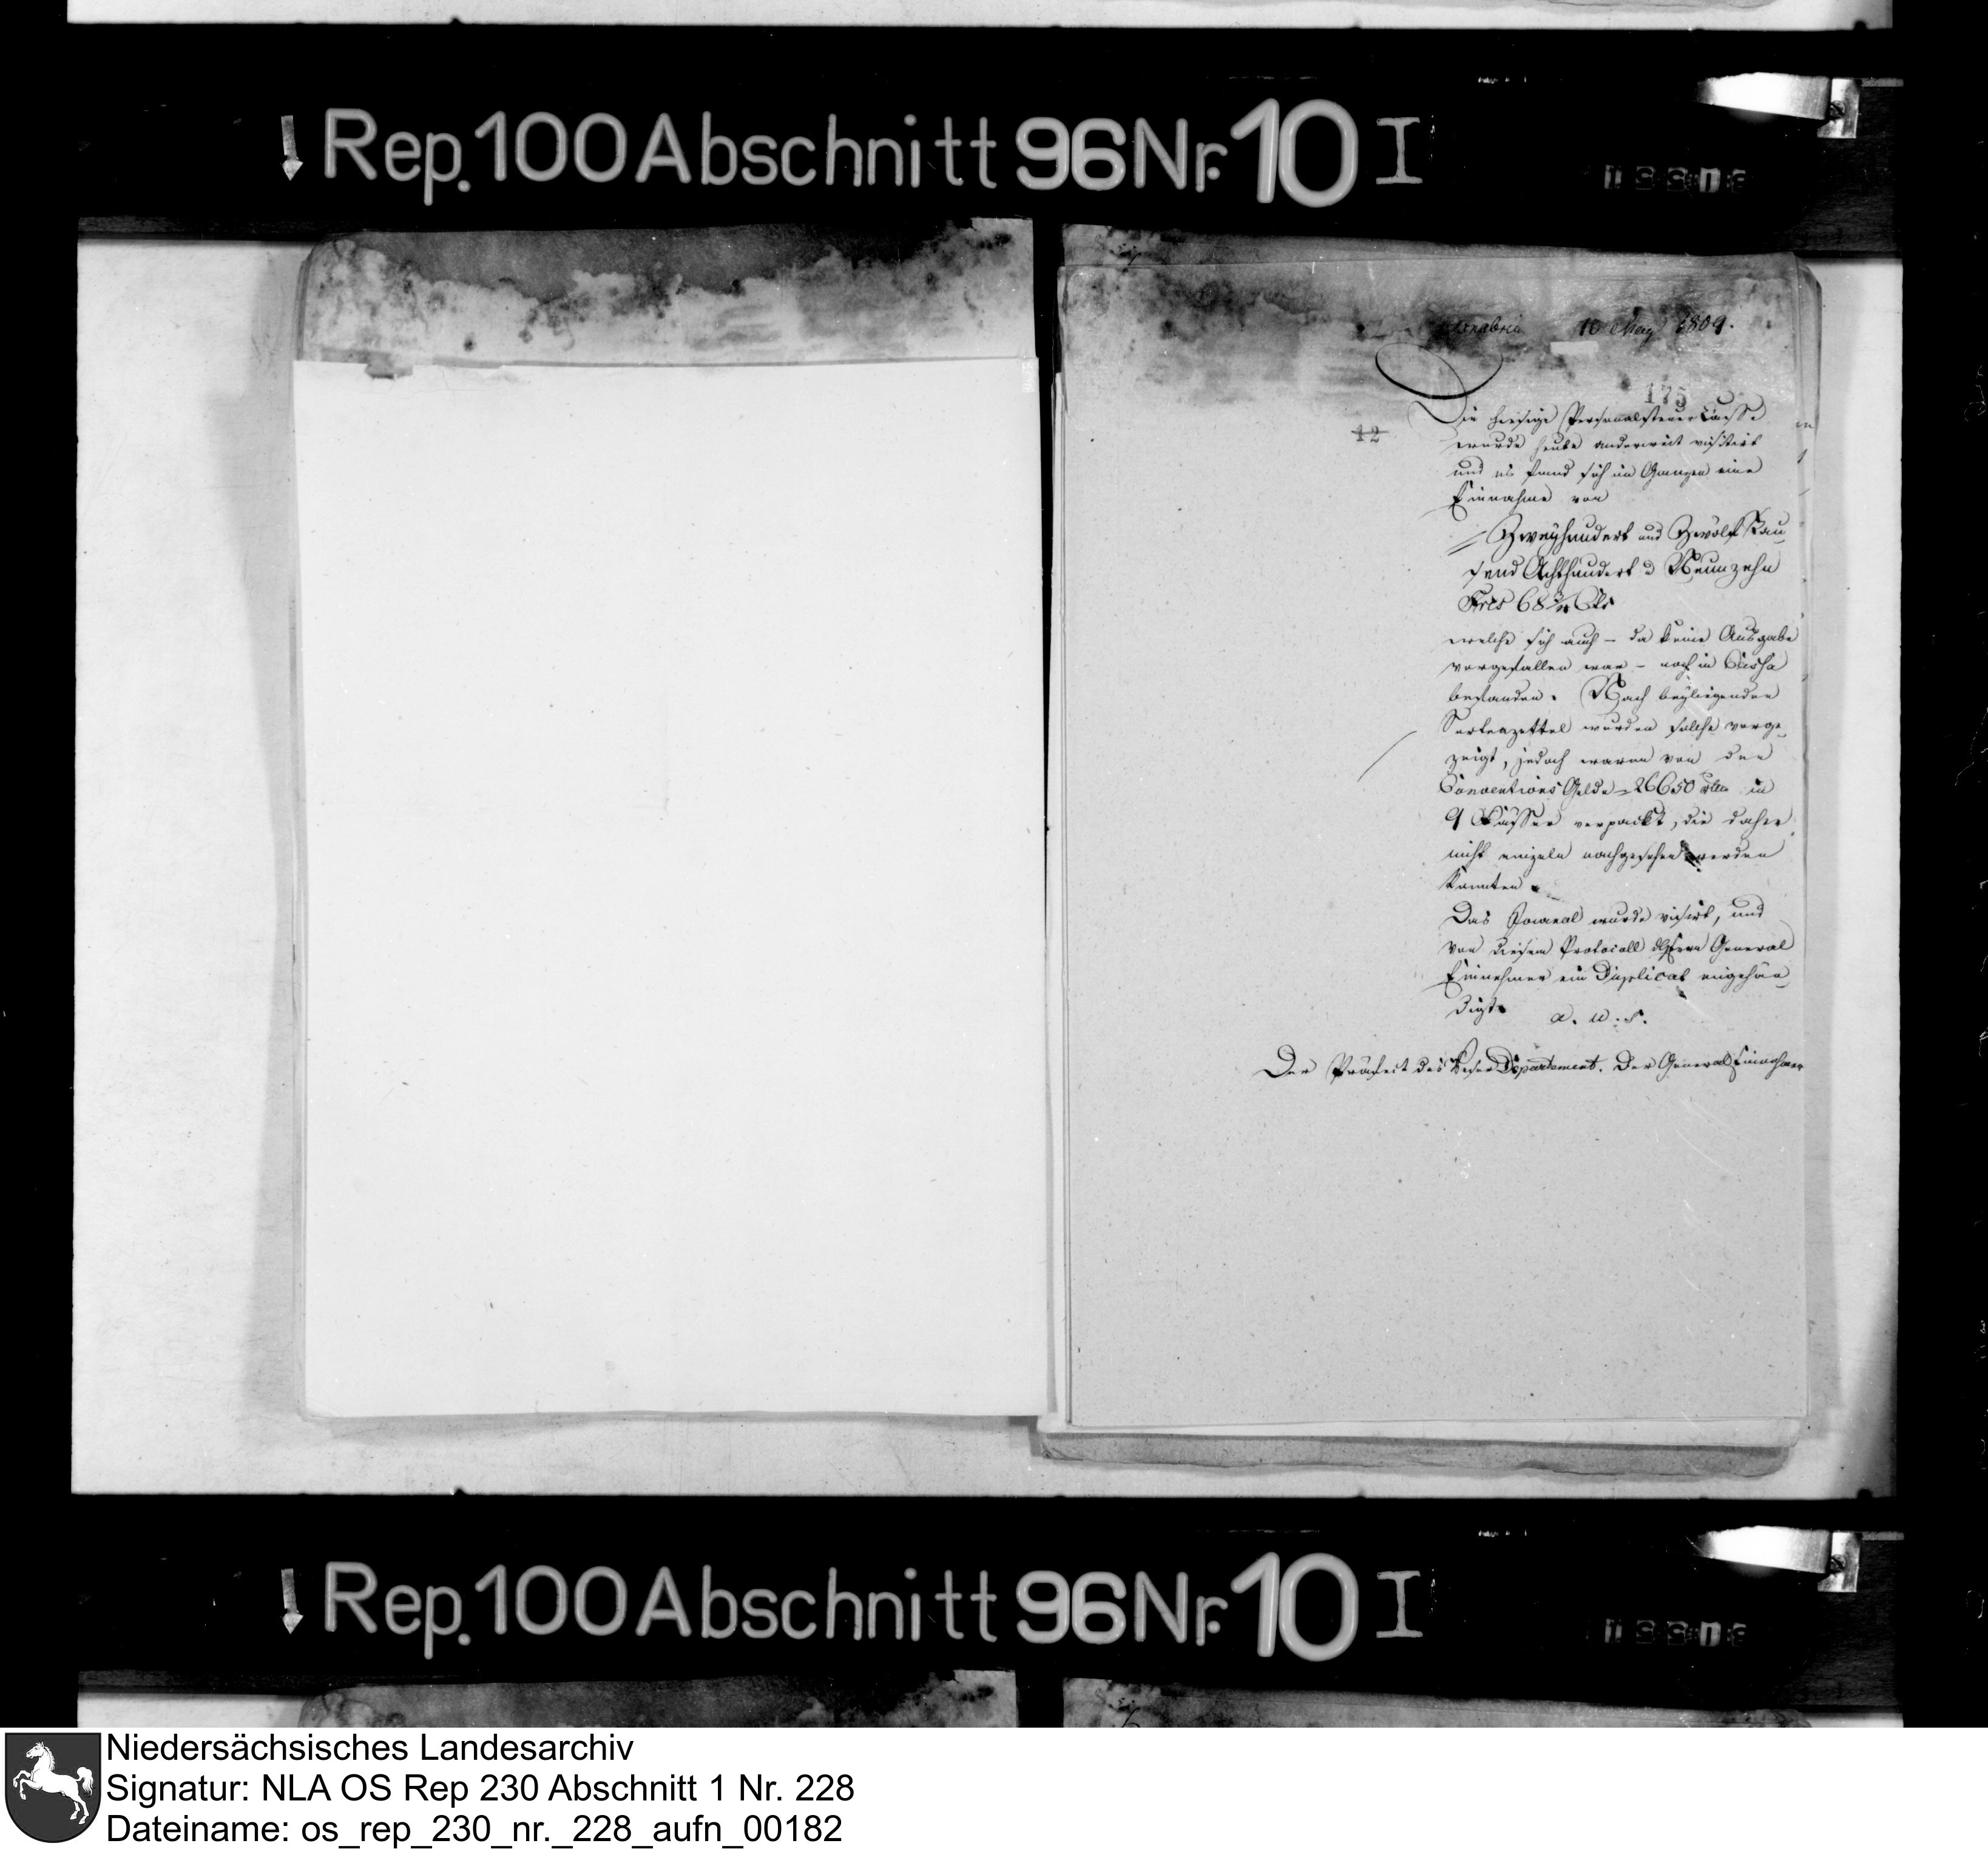 Rep. 100 Abschnitt 96 Nr. 10 I
10 May 1809.
175
Die hiesige Personalsteuer Casse
12
wurde heute anderweit visitirt
und es fand sich im Ganzen eine
Einnahme von
Zweyhundert und Zwölf Tau
send Achthundert Neunzehn
Frcs 68 Cts
welche sich auch – da keine Ausgabe
vorgefallen war – noch in Cassa
befanden. Nach beyliegenden
Sortenzettel wurden solche vorge
zeigt, jedoch waren von dem
Conventions Gelde 26650 in
9 Fässer verpackt, die daher
nicht einzeln nachgesehen werden
konnten.
Das Journal wurde visirt, und
von diesem Protocoll General
Einnehmer ein Duplicat eingehän
digt.
a. u. s.
Der Präfect des Weser Departement. Der General Einnehmer
Rep. 100 Abschnitt 96 Nr. 10 I
Niedersächsisches Landesarchiv
Signatur: NLA OS Rep 230 Abschnitt 1 Nr. 228
Dateiname: os_rep_230_nr._228_aufn_00182